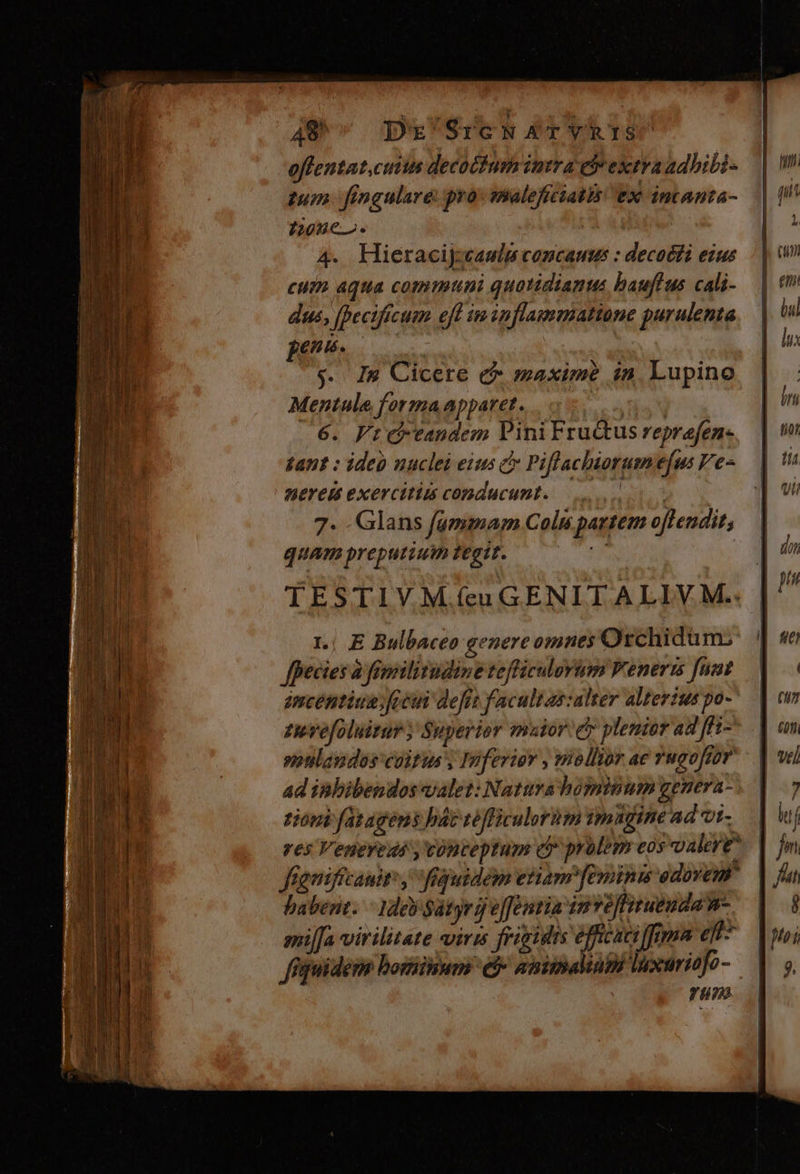 48 DE SIGNATVRIS
ostentat, cuius decoctum intra & extra adhibi-
tum singulare pro maleficiatis ex incanta-
tione.
4. Hieracij caulis concauus : decocti eius
cum aqua communi quotidianus haustus cali-
dus, specificum est in inflammatione purulenta
penis.
5. In Cicere & maximè in Lupino
Mentulæ forma apparet.
6. Vt & eandem Pini Fructus repræsen-
tant : ideò nuclei eius & Pistachiorum esus Ve-
nereis exercitiis conducunt.
7. Glans summam Colis partem ostendit,
quam preputium tegit.
TESTIVM seu GENITALIVM.
1. E Bulbaceo genere omnes Orchidum
species à similitudine testiculorum Veneris sunt
incentiuæ, sicui desit facultas: alter alterius po-
tu resoluitur; Superior maior & plenior ad sti-
mulandos coitus, Inferior, mollior ac rugosior
ad inhibendos valet: Natura hominum genera-
tioni satagens hâc testiculorum imagine ad vi-
res Venereas, conceptum & prolem eos valere
significauit, siquidem etiam feminis odorem
habent. Ideò Satyrij essentia in restituenda a-
missa virilitate viris frigidis efficacissima est:
siquidem hominum & animalium luxurioso-
rum